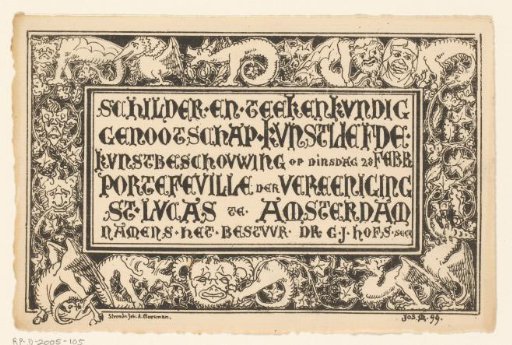 SCHILDER·EN·TEEKENKVNDIG
GENOOTSCHAP·KVNSTLIEFDE:
KVNSTBESCHOVWING OP DINSDAG 28 FEBR.
PORTEFEVILLE DER VEREENIGING
ST·LVCAS TE AMSTERDAM
NAMENS·HET·BESTVVR·DR G.J.HOFS·SEC
Jos. M. 99.
RP-D-2005-105